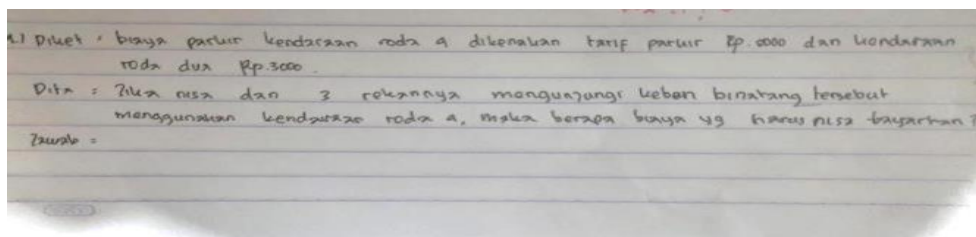 1.) Diket : biaya parkir kendaraan roda 4 dikenakan tarif parkir Rp. 5000 dan kendaraan
roda dua Rp.3000.
Dita = Jika nisa dan 3 rekannya mengunjungi kebon binatang tersebut
menggunakan kendaraan roda 4, maka berapa biaya yg harus nisa bayarkan?
Jawab =